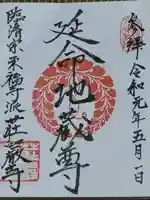 奉拝 令和元年五月一日
延命地蔵尊
臨済宗東福寺派 荘厳寺